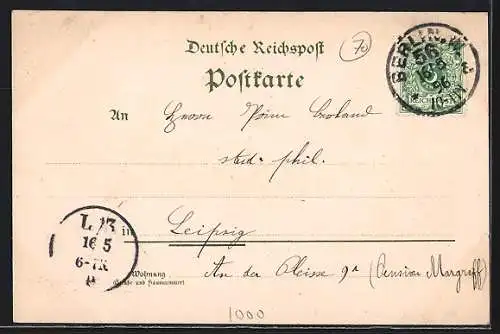 Deutsche Reichspost
70
Postkarte
BERLIN. W
56
16 5
96
10-11V
REICHSPOST
An Herrn
stud. phil.
in Leipzig
L 13
16 5
6-7N
Wohnung
(Straße und Hausnummer)
An der Pleisse 9a (Pension Margraff)
1000